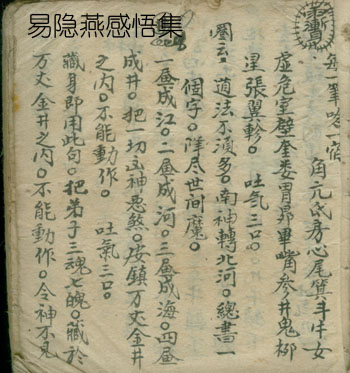 易隐燕感悟集
每一筆唸一宿
角亢氐房心尾箕斗牛女
虛危室壁奎婁胃昴畢嘴參井鬼柳
星張翼軫。吐氣三口。
圈云。道法不湏多。南神轉北河。總書一
個字。降尽世间魔。
一画成江。二画成河。三画成海。四画
成井。把一切神悪煞。安鎮万丈金井
之内。不能動作。吐氣三口。
藏身即用此句。把弟子三魂七魄。藏於
万丈金井之内。不能動作。令神不見